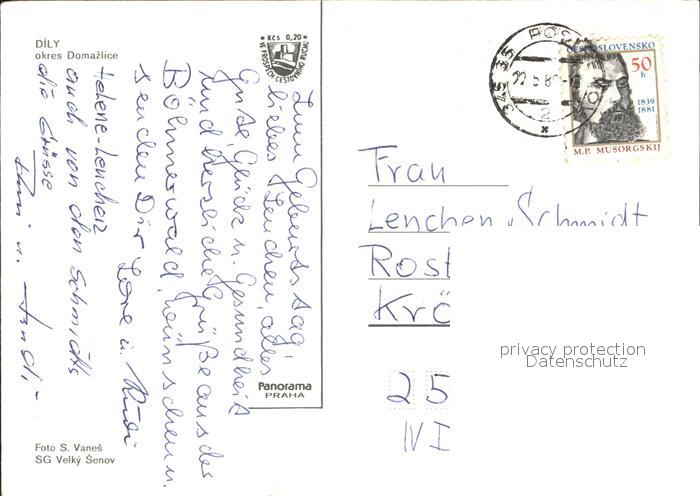 DÍLY
okres Domažlice
Kčs 0,20
VE PROSPĚCH CESTOVNÍHO RUCHU
Zum Geburtstag,
liebes Lenchen, alles
Gute, Glück u. Gesundheit
und herzliche Grüße aus des
Böhmerwald, wünschen u.
senden Dir Lore u. Rudi
Helene-Lenchen
auch von den Schmidts
die Grüsse
u.
Panorama
PRAHA
Foto S. Vaneš
SG Velký Šenov
345 35 POS
22.5.8
ČESKOSLOVENSKO
50 h
1839
1881
M.P. MUSORGSKIJ
Frau
Lenchen Schmidt
Rost
Krö
25
NI
privacy protection
Datenschutz